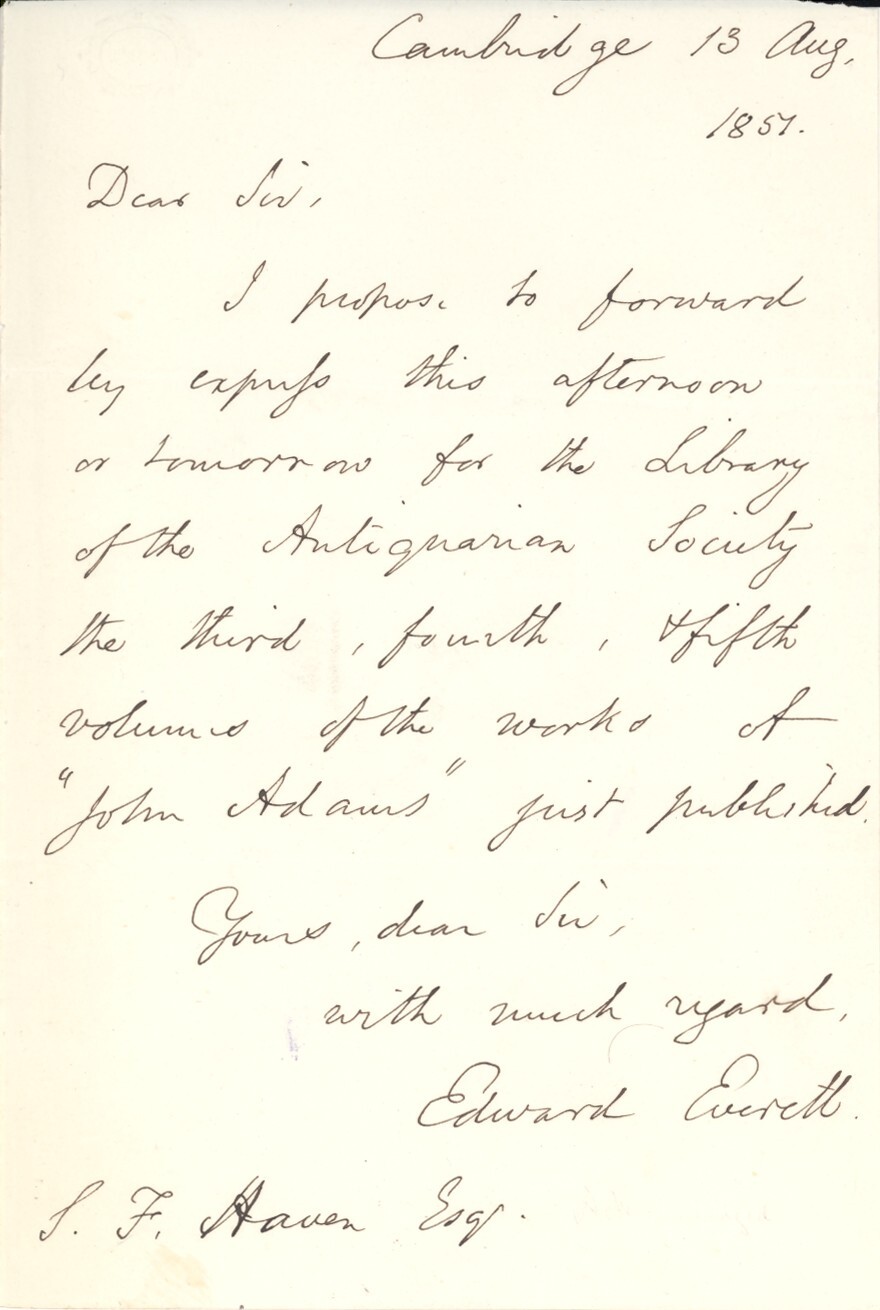 Cambridge 13 Aug,
1851.
Dear Sir,
I propose to forward
by express this afternoon
or tomorrow for the Library
of the Antiquarian Society
the third, fourth, & fifth
volumes of the works of
"John Adams" just published.
Yours, dear Sir,
with much regard,
Edward Everett.
S. F. Haven Esq.